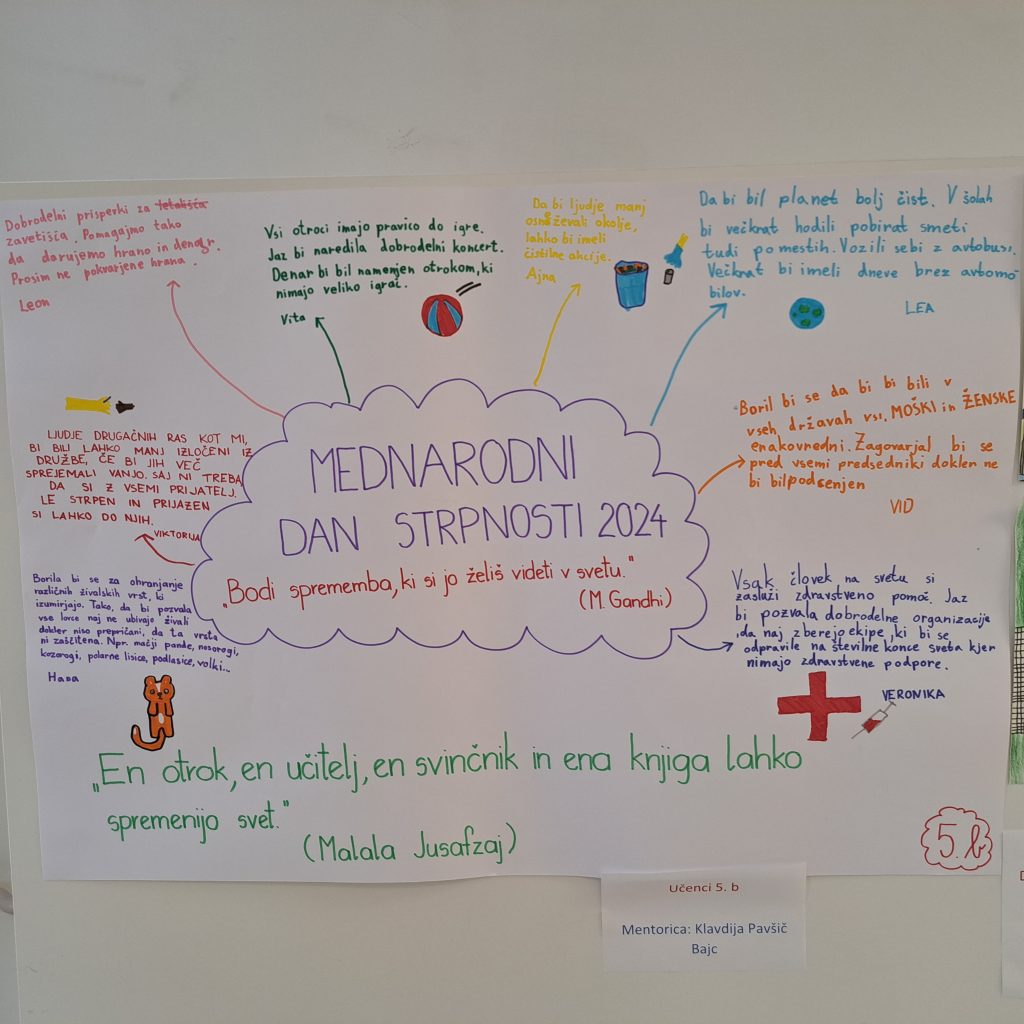 Dobrodelni prisperki za letališča
zavetišča. Pomagajmo tako
da darujemo hrano in denagr.
Prosim ne pokvarjene hrana.
Leon
Vsi otroci imajo pravico do igre.
Jaz bi naredila dobrodelni koncert.
Denar bi bil namenjen otrokom, ki
nimajo veliko igrač.
Vita
Da bi ljudje manj
osnaževali okolje,
lahko bi imeli
čistilne akcije.
Ajna
Da bi bil planet bolj čist. V šolah
bi večkrat hodili pobirat smeti
tudi po mestih. Vozili sebi z avtobusi.
Večkrat bi imeli dneve brez avtomo-
bilov.
LEA
LJUDJE DRUGAČNIH RAS KOT MI,
BI BILI LAHKO MANJ IZLOČENI IZ
DRUŽBE, ČE BI JIH VEČ
SPREJEMALI VANJO. SAJ NI TREBA,
DA SI Z VSEMI PRIJATELJ.
LE STRPEN IN PRIJAZEN
SI LAHKO DO NJIH.
VIKTORIJA
Boril bi se da bi bi bili v
vseh državah vsi, MOŠKI in ŽENSKE
enakovnedni. Zagovarjal bi se
pred vsemi predsedniki dokler ne
bi bil podsenjen
VID
MEDNARODNI
DAN STRPNOSTI 2024
„Bodi sprememba, ki si jo želiš videti v svetu."
(M. Gandhi)
Borila bi se za ohranjanje
različnih živalskih vrst, ki
izumirjajo. Tako, da bi pozvala
vse lovce naj ne ubivajo živali
dokler niso prepričani, da ta vrsta
ni zaščitena. Npr. mačji pande, nosorogi,
kozorogi, polarne lisice, podlasice, volki...
Hana
Vsak človek na svetu si
zasluži zdravstveno pomoč. Jaz
bi pozvala dobrodelne organizacije
,da naj zberejo ekipe, ki bi se
odpravile na številne konce sveta kjer
nimajo zdravstvene podpore.
VERONIKA
„En otrok, en učitelj, en svinčnik in ena knjiga lahko
spremenijo svet."
(Malala Jusafzaj)
5. b
Učenci 5. b
Mentorica: Klavdija Pavšič
Bajc